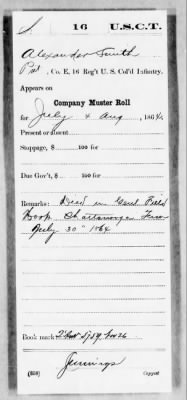 S 16 U.S.C.T.
Alexander Smith
Pvt, Co. E, 16 Reg't U. S. Col'd Infantry.
Appears on
Company Muster Roll
for July & Aug, 1864.
Present or absent
Stoppage, $ 100 for
Due Gov't, $ 100 for
Remarks: Died in Genl Field
Hosp. Chattanooga Tenn
July 30" 1864
Book mark:
Jennings
(358) Copyist